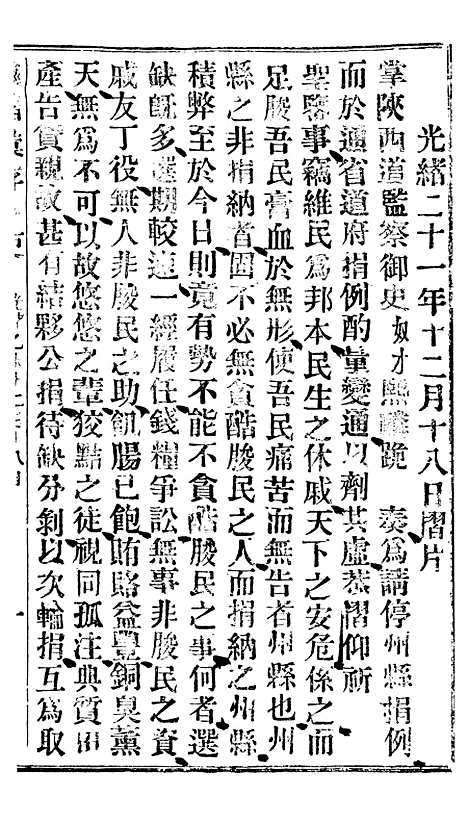 光緒二十一年十二月十八日摺片
掌陝西道監察御史奴才熙麟跪　奏為請停州縣捐例
而於通省道府捐例酌量變通以劑其虛恭摺仰祈
聖鑒事竊維民為邦本民生之休戚天下之安危係之而
足朘吾民膏血於無形使吾民痛苦而無告者州縣也州
縣之非捐納者固不必無貪酷朘民之人而捐納之州縣
積弊至於今日則竟有勢不能不貪酷朘民之事何者選
缺旣多選期較速一經履任錢糧爭訟無事非朘民之資
戚友丁役無人非朘民之助飢腸已飽賄賂益豐銅臭薰
天無為不可以故悠悠之輩狡黠之徒視同孤注典質田
產告貸親故甚有結夥公捐待缺分剝以次輪捐互為取